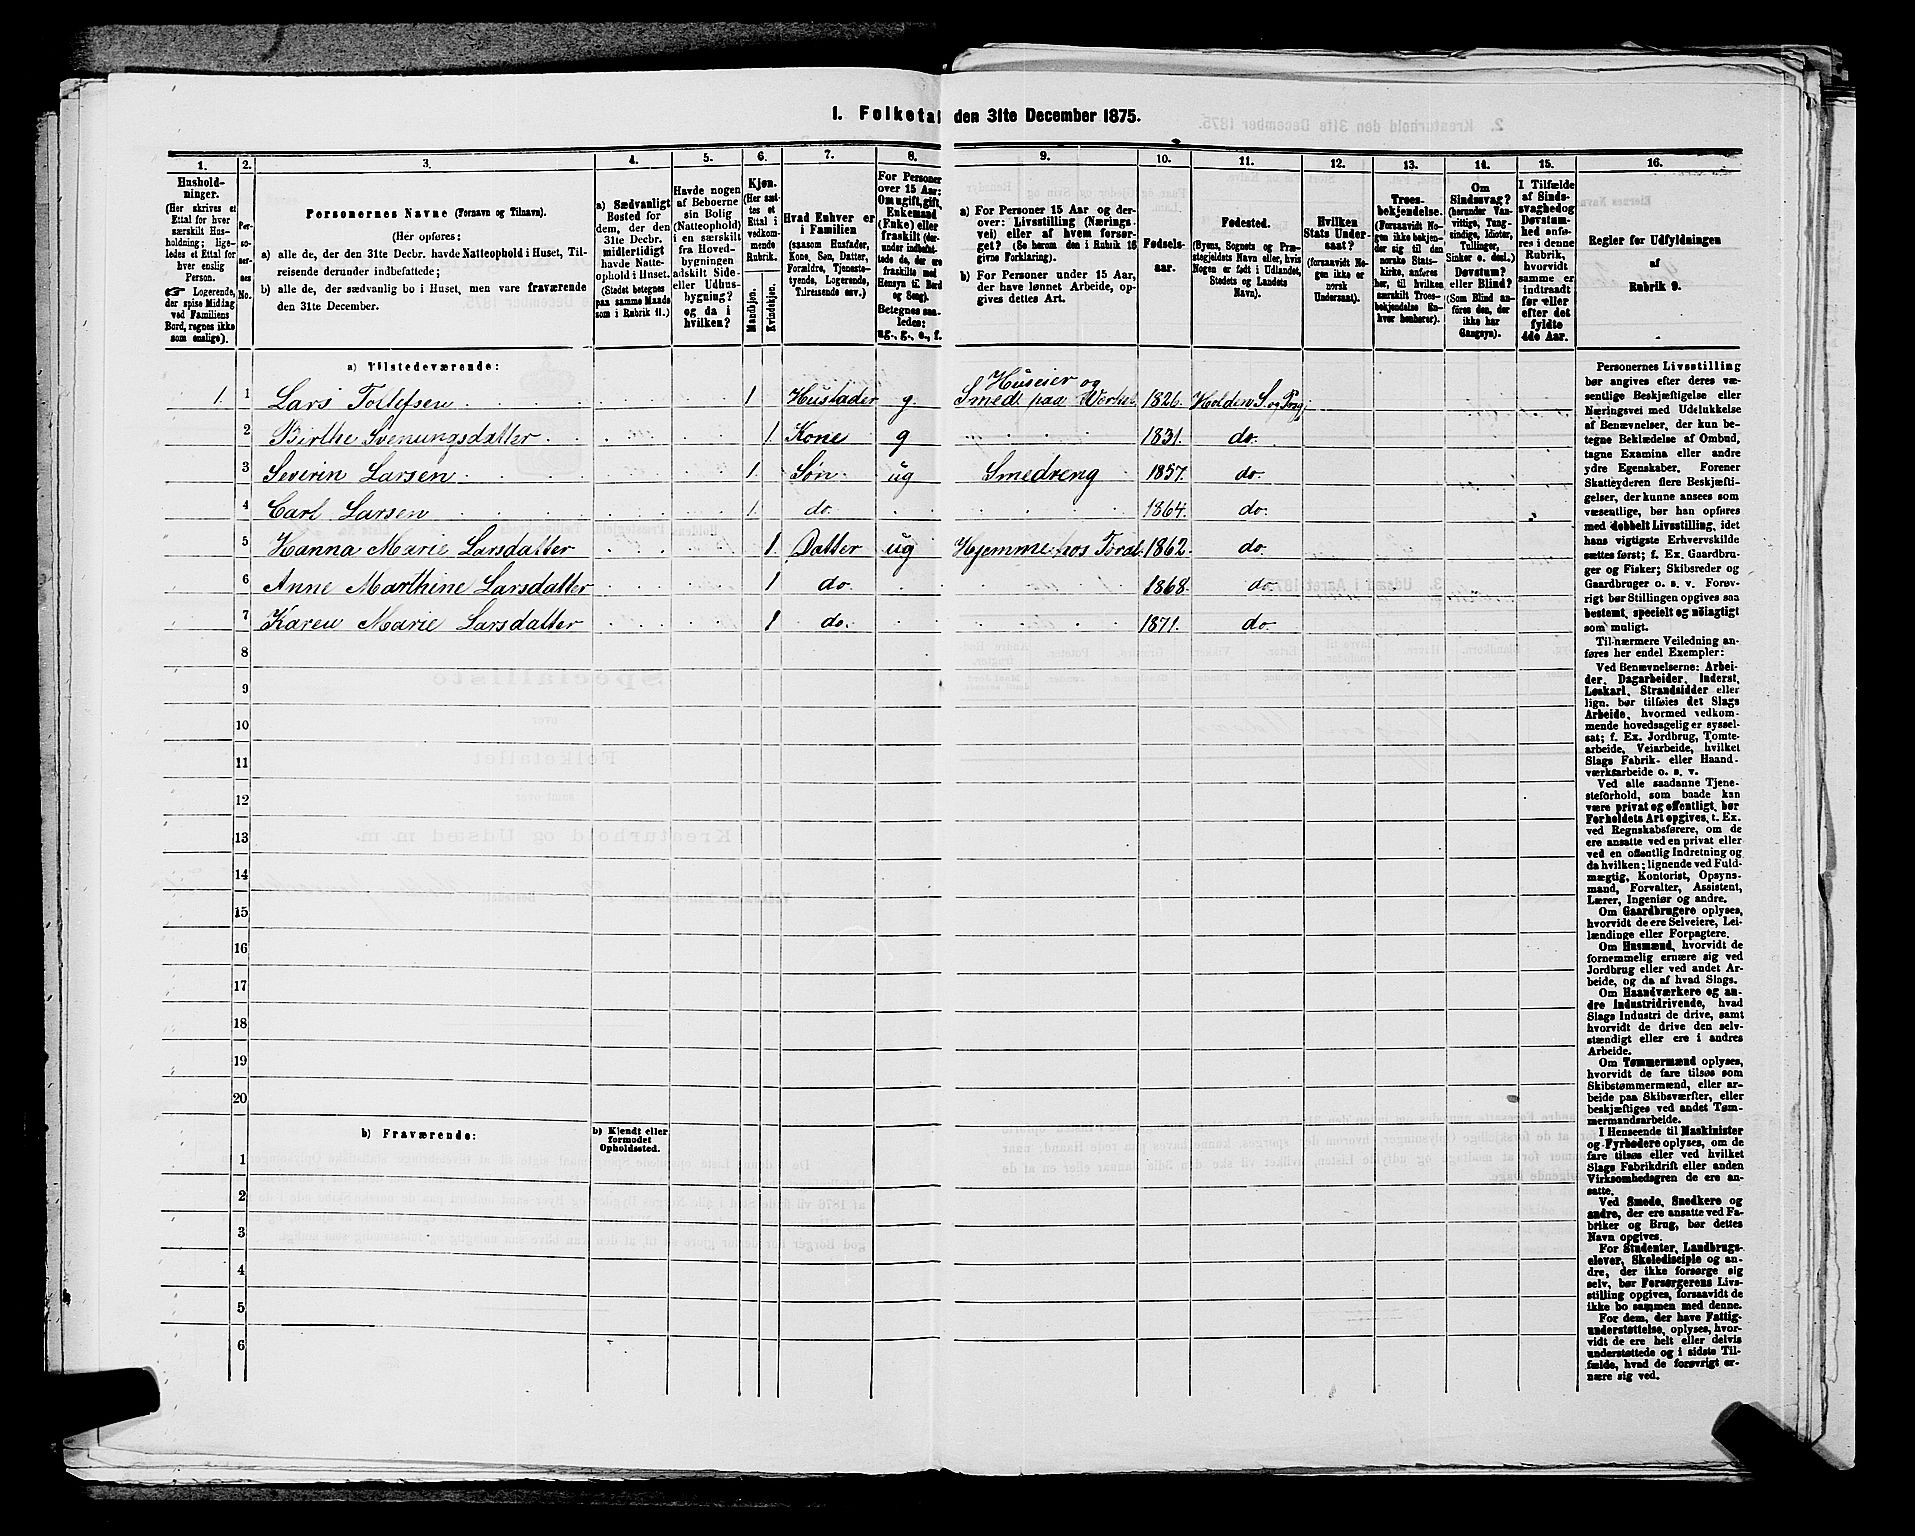 1. Folketal den 31te December 1875.
1. 2. 3. 4. 5. 6. 7. 8. 9. 10. 11. 12. 13. 14. 15. 16.
Hushold-
ninger.
(Her skrives et
Ettal for hver
særskilt Hus-
holdning; lige-
ledes et Ettal for
hver enslig
Person.
☞ Logerende,
der spise Middag
ved Familiens
Bord, regnes ikke
som enslige).
Per-
so-
ner-
nes
No.
Personernes Navne (Fornavn og Tilnavn).
(Her opføres:
a) alle de, der den 31te Decbr. havde Natteophold i Huset, Til-
reisende derunder indbefattede;
b) alle de, der sædvanlig bo i Huset, men vare fraværende
den 31te December.
a) Sædvanligt
Bosted for
dem, der den
31te Decbr.
midlertidigt
havde Natte-
ophold i Huset.
(Stedet betegnes
paa samme Maade
som i Rubrik 11.)
Havde nogen
af Beboerne
sin Bolig
(Natteophold)
i en særskilt
fra Hoved-
bygningen
adskilt Side-
eller Udhus-
bygning?
og da i
hvilken?
Kjøn.
(Her sæt-
tes et
Ettal i
vedkom-
mende
Rubrik.
Mandkjøn.
Kvindekjøn.
Hvad Enhver er
i Familien
(saasom Husfader,
Kone, Søn, Datter,
Forældre, Tjeneste-
tyende, Logerende,
Tilreisende osv.)
For Personer
over 15 Aar:
Om ugift, gift,
Enkemand
(Enke) eller
fraskilt (der-
under indbefat-
tede de, der ere
fraskilte med
Hensyn til Bord
og Seng).
Betegnes saa-
ledes:
ug., g., e., f.
a) For Personer 15 Aar og der-
over: Livsstilling (Nærings-
vei) eller af hvem forsør-
get? (Se herom den i Rubrik 16
givne Forklaring).
b) For Personer under 15 Aar,
der have lønnet Arbeide, op-
gives dettes Art.
Fødsels-
aar.
Fødested.
(Byens, Sognets og Præ-
stegjeldets Navn eller, hvis
Nogen er født i Udlandet,
Stedets og Landets
Navn).
Hvilken
Stats Under-
saat?
(forsaavidt No-
gen ikke er
norsk
Undersaat).
Troes-
bekjendelse.
(Forsaavidt No-
gen ikke bekjen-
der sig til den
norske Stats-
kirke, anføres
her, til hvilken
særskilt Troes-
bekjendelse En-
hver henhører).
Om
Sindssvag?
(herunder Van-
vittige, Tung-
sindige, Idioter,
Tullinger,
Sinker o. desl.)
Døvstum?
eller Blind?
(Som Blind an-
føres den, der
ikke har
Gangsyn).
I Tilfælde
af Sinds-
svaghed og
Døvstum-
hed anfø-
res i denne
Rubrik,
hvorvidt
samme er
indtraadt
før eller
efter det
fyldte
4de Aar.
Regler for Udfyldningen
af
Rubrik 9.
a) Tilstedeværende:
1. 1 Lars Tollefsen 1 Husfader g. Huseier og
Smed paa Værket 1826. Holden S. og Prgj
2 Birthe Svenungsdatter 1 Kone g 1831. do.
3 Severin Larsen 1 Søn ug Smedreng 1857. do.
4 Carl Larsen 1 do. 1864. do.
5 Hanna Marie Larsdatter 1 Datter ug Hjemme hos Foræl. 1862. do.
6 Anne Marthine Larsdatter 1 do. 1868. do.
7 Karen Marie Larsdatter 1 do. 1871. do.
8
9
10
11
12
13
14
15
16
17
18
19
20
b) Fraværende: b) Kjendt eller
formodet
Opholdssted.
1
2
3
4
5
6
Personernes Livsstilling
bør angives efter deres væ-
sentlige Beskjæftigelse eller
Næringsvei med Udelukkelse
af Benævnelser, der kun be-
tegne Beklædelse af Ombud,
tagne Examina eller andre
ydre Egenskaber. Forener
Skatteyderen flere Beskjæfti-
gelser, der kunne ansees som
væsentlige, bør han opføres
med dobbelt Livsstilling, idet
hans vigtigste Erhvervskilde
sættes først; f. Ex. Gaardbru-
ger og Fisker; Skibsreder og
Gaardbruger o. s. v. Forøv-
rigt bør Stillingen opgives saa
bestemt, specielt og nöiagtigt
som muligt.
Til nærmere Veiledning an-
føres her endel Exempler:
Ved Benævnelserne: Arbei-
der, Dagarbeider, Inderst,
Løskarl, Strandsidder eller
lign. bør tilføies det Slags
Arbeide, hvormed vedkom-
mende hovedsagelig er syssel-
sat; f. Ex. Jordbrug, Tomte-
arbeide, Veiarbeide, hvilket
Slags Fabrik- eller Haand-
værksarbeide o. s. v.
Ved alle saadanne Tjene-
steforhold, som baade kan
være privat og offentligt, bør
Forholdets Art opgives, t. Ex.
ved Regnskabsførere, om de
ere ansatte ved en privat eller
ved en offentlig Indretning og
da hvilken; lignende ved Fuld-
mægtig, Kontorist, Opsyns-
mand, Forvalter, Assistent,
Lærer, Ingeniør og andre.
Om Gaardbrugere oplyses,
hvorvidt de ere Selveiere, Lei-
lændinge eller Forpagtere.
Om Husmænd, hvorvidt de
fornemmelig ernære sig ved
Jordbrug eller ved andet Ar-
beide, og da af hvad Slags.
Om Haandværkere og an-
dre Industridrivende, hvad
Slags Industri de drive, samt
hvorvidt de drive den selv-
stændigt eller ere i andres
Arbeide.
Om Tømmermænd oplyses,
hvorvidt de fare tilsøs som
Skibstømmermænd, eller ar-
beide paa Skibsværfter, eller
beskjæftiges ved andet Tøm-
mermandsarbeide.
I Henseende til Maskinister
og Fyrbødere oplyses, om de
fare tilsøs eller ved hvilket
Slags Fabrikdrift eller anden
Virksomhedsgren de ere an-
satte.
Ved Smede, Snedkere og
andre, der ere ansatte ved Fa-
briker og Brug, bør dettes
Navn opgives.
For Studenter, Landbrugs-
elever, Skoledisciple og an-
dre, der ikke forsørge sig
selv, bør Forsørgerens Livs-
stilling opgives, forsaavidt de
ikke bo sammen med denne.
For dem, der have Fattig-
understøttelse, oplyses, hvor-
vidt de ere helt eller delvis
understøttede og i sidste Til-
fælde, hvad de forøvrigt er-
nære sig ved.